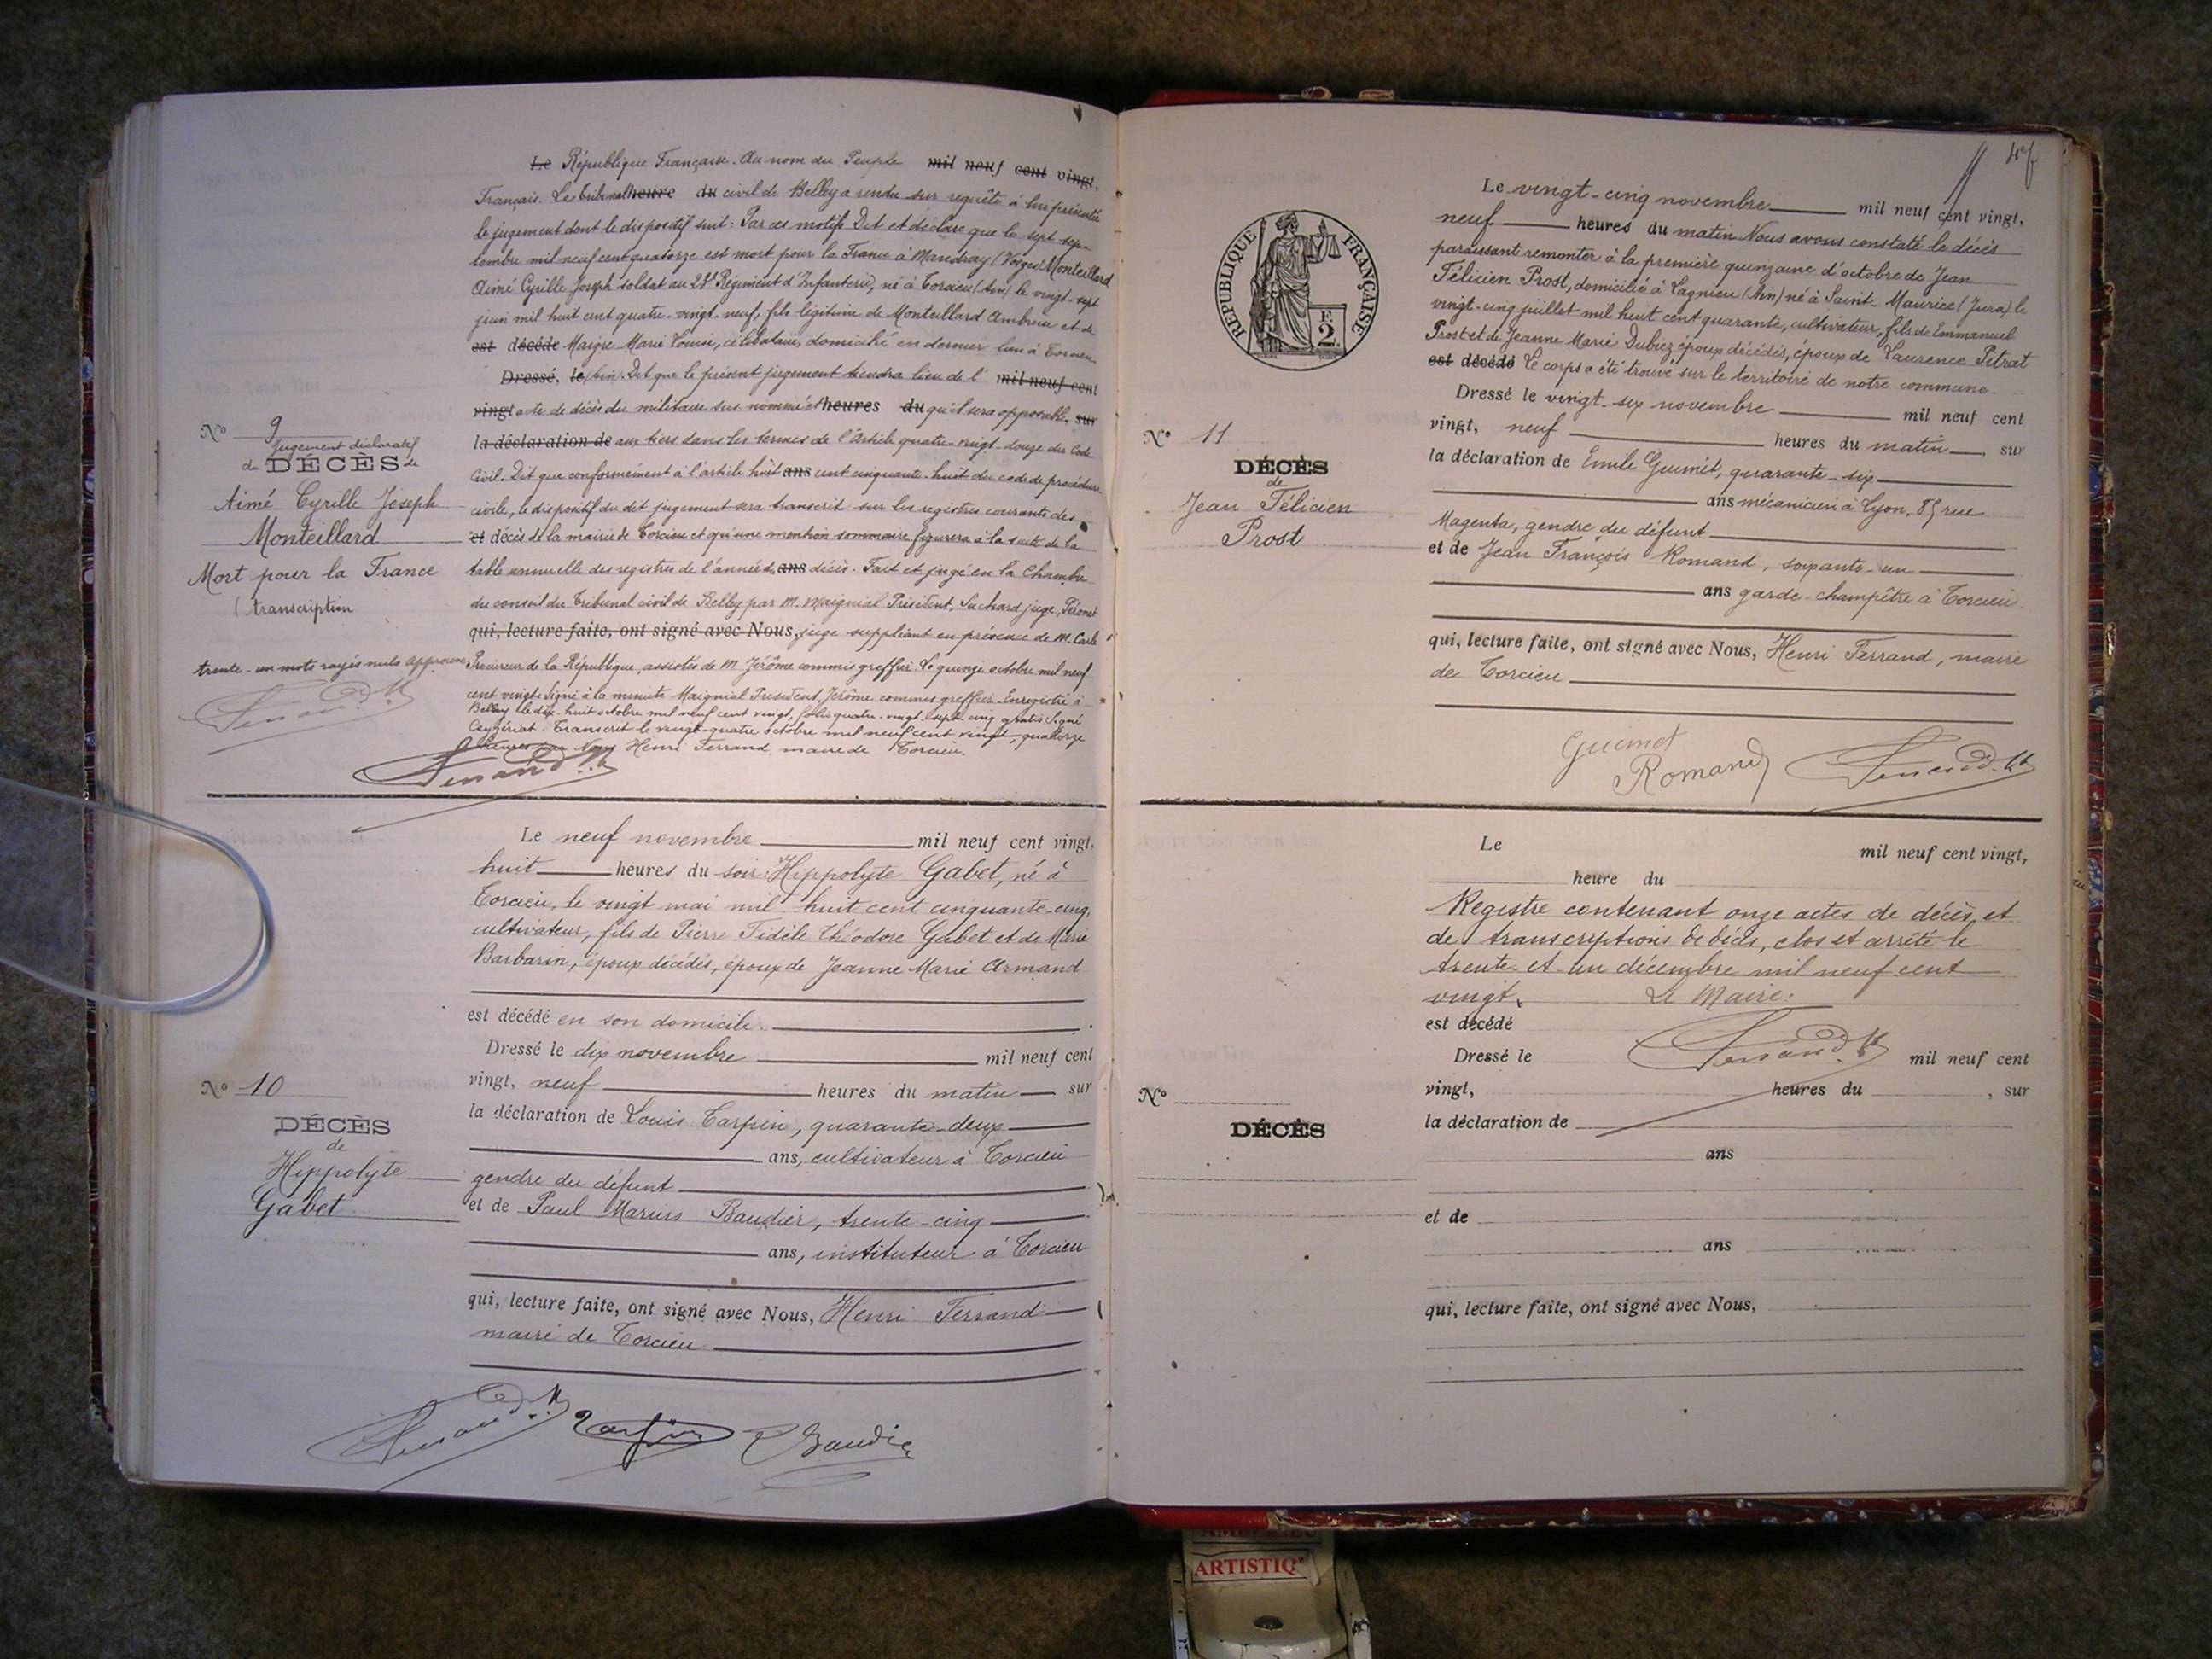 Le République Française. Au nom du Peuple mil neuf cent vingt,
Français. Le Tribunal heure du civil de Belley a rendu sur requête à lui présentée
le jugement dont le dispositif suit : Par ces motifs Dit et déclare que le sept sep-
tembre mil neuf cent quatorze est mort pour la France à Mandray (Vosges) Monteillard
Aimé Cyrille Joseph soldat au 23e Régiment d'Infanterie, né à Torcieu (Ain) le vingt-sept
juin mil huit cent quatre-vingt-neuf, fils légitime de Monteillard Ambroise et de
est décédé Maigre Marie Louise, célibataire, domicilié en dernier lieu à Torcieu
Dressé, le (Ain). Dit que le présent jugement tiendra lieu de l' mil neuf cent
vingt acte de décès du militaire sus nommé et heures du qu'il sera opposable, sur
la déclaration de aux tiers dans les termes de l'Article quatre-vingt-douze du Code
Civil. Dit que conformément à l'article huit ans cent cinquante-huit du code de procédure
civile, le dispositif du dit jugement sera transcrit sur les registres courants des
et décès de la mairie de Torcieu et qu'une mention sommaire figurera à la suite de la
table annuelle des registres de l'année du ans décès. Fait et jugé en la Chambre
du conseil du Tribunal civil de Belley par M. Maignial Président, Suchard juge, Péronet
qui, lecture faite, ont signé avec Nous, juge suppléant en présence de M. Carle
Procureur de la République, assistés de M. Jérôme commis greffier. Le quinze octobre mil neuf
cent vingt. Signé à la minute Maignial Président, Jérôme commis greffier. Enregistré à
Belley le dix-huit octobre mil neuf cent vingt, folio quatre-vingt-sept cinq gratis Signé
Ceyzériat. Transcrit le vingt-quatre octobre mil neuf cent vingt, quatorze
heures par Nous Henri Ferrand, maire de Torcieu.
Ferrand H
No 9
Jugement déclaratif
de DÉCÈS de
Aimé Cyrille Joseph
Monteillard
Mort pour la France
(transcription
trente-un mots rayés nuls Approuvé
Ferrand H
Le neuf novembre mil neuf cent vingt,
huit heures du soir : Hippolyte Gabet, né à
Torcieu, le vingt mai mil huit cent cinquante-cinq,
cultivateur, fils de Pierre Fidèle Théodore Gabet et de Marie
Barbarin, époux décédés, époux de Jeanne Marie Armand
est décédé en son domicile.
Dressé le dix novembre mil neuf cent
vingt, neuf heures du matin sur
la déclaration de Louis Carpin, quarante-deux
ans, cultivateur à Torcieu
gendre du défunt
et de Paul Marius Baudier, trente-cinq
ans, instituteur à Torcieu
qui, lecture faite, ont signé avec Nous, Henri Ferrand
maire de Torcieu
No 10
DÉCÈS
de
Hippolyte
Gabet
Ferrand H Carpin P Baudier
Le vingt-cinq novembre mil neuf cent vingt,
neuf heures du matin Nous avons constaté le décès
paraissant remonter à la première quinzaine d'octobre de Jean
Félicien Prost, domicilié à Lagnieu (Ain) né à Saint-Maurice (Jura) le
vingt-cinq juillet mil huit cent quarante, cultivateur, fils de Emmanuel
Prost et de Jeanne Marie Dubiez époux décédés, époux de Laurence Pétrat
est décédé Le corps a été trouvé sur le territoire de notre commune
Dressé le vingt-six novembre mil neuf cent
vingt, neuf heures du matin, sur
la déclaration de Emile Guimet, quarante-six
ans mécanicien à Lyon, 85 rue
Magenta, gendre du défunt
et de Jean François Romand, soixante-un
ans garde-champêtre à Torcieu
qui, lecture faite, ont signé avec Nous, Henri Ferrand, maire
de Torcieu
RÉPUBLIQUE FRANÇAISE
F.
2.
No 11
DÉCÈS
de
Jean Félicien
Prost
Guimet
Romand Ferrand H
Le mil neuf cent vingt,
heure du
Registre contenant onze actes de décès, et
de transcriptions de décès, clos et arrêté le
trente-et-un décembre mil neuf cent
vingt. Le Maire :
est décédé
Ferrand H
Dressé le mil neuf cent
vingt, heures du , sur
la déclaration de
ans
et de
ans
qui, lecture faite, ont signé avec Nous,
No
DÉCÈS
ARTISTIQ